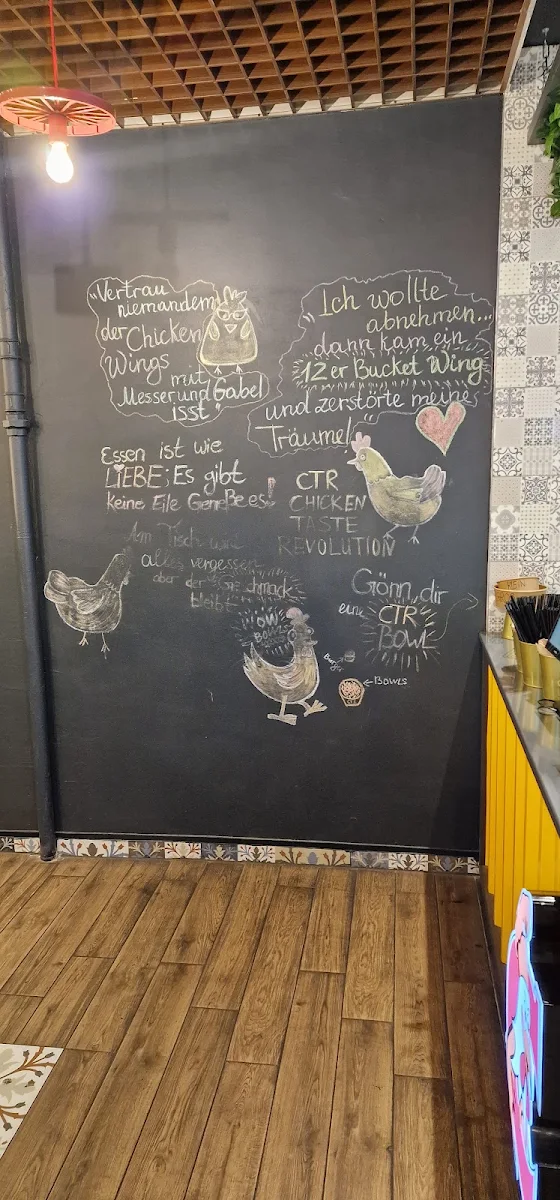 "Vertrau
niemandem
der Chicken
Wings
mit
Messer und Gabel
isst"
"Ich wollte
abnehmen...
dann kam ein
12er Bucket Wing
und zerstörte meine
Träume!"
Essen ist wie
LIEBE; Es gibt
keine Eile Genießen es!
CTR
CHICKEN
TASTE
REVOLUTION
Am Tisch wird
alles vergessen
aber der Geschmack
bleibt
Gönn dir
eine CTR
BOWL
BOWLS
Burger
← BOWLS